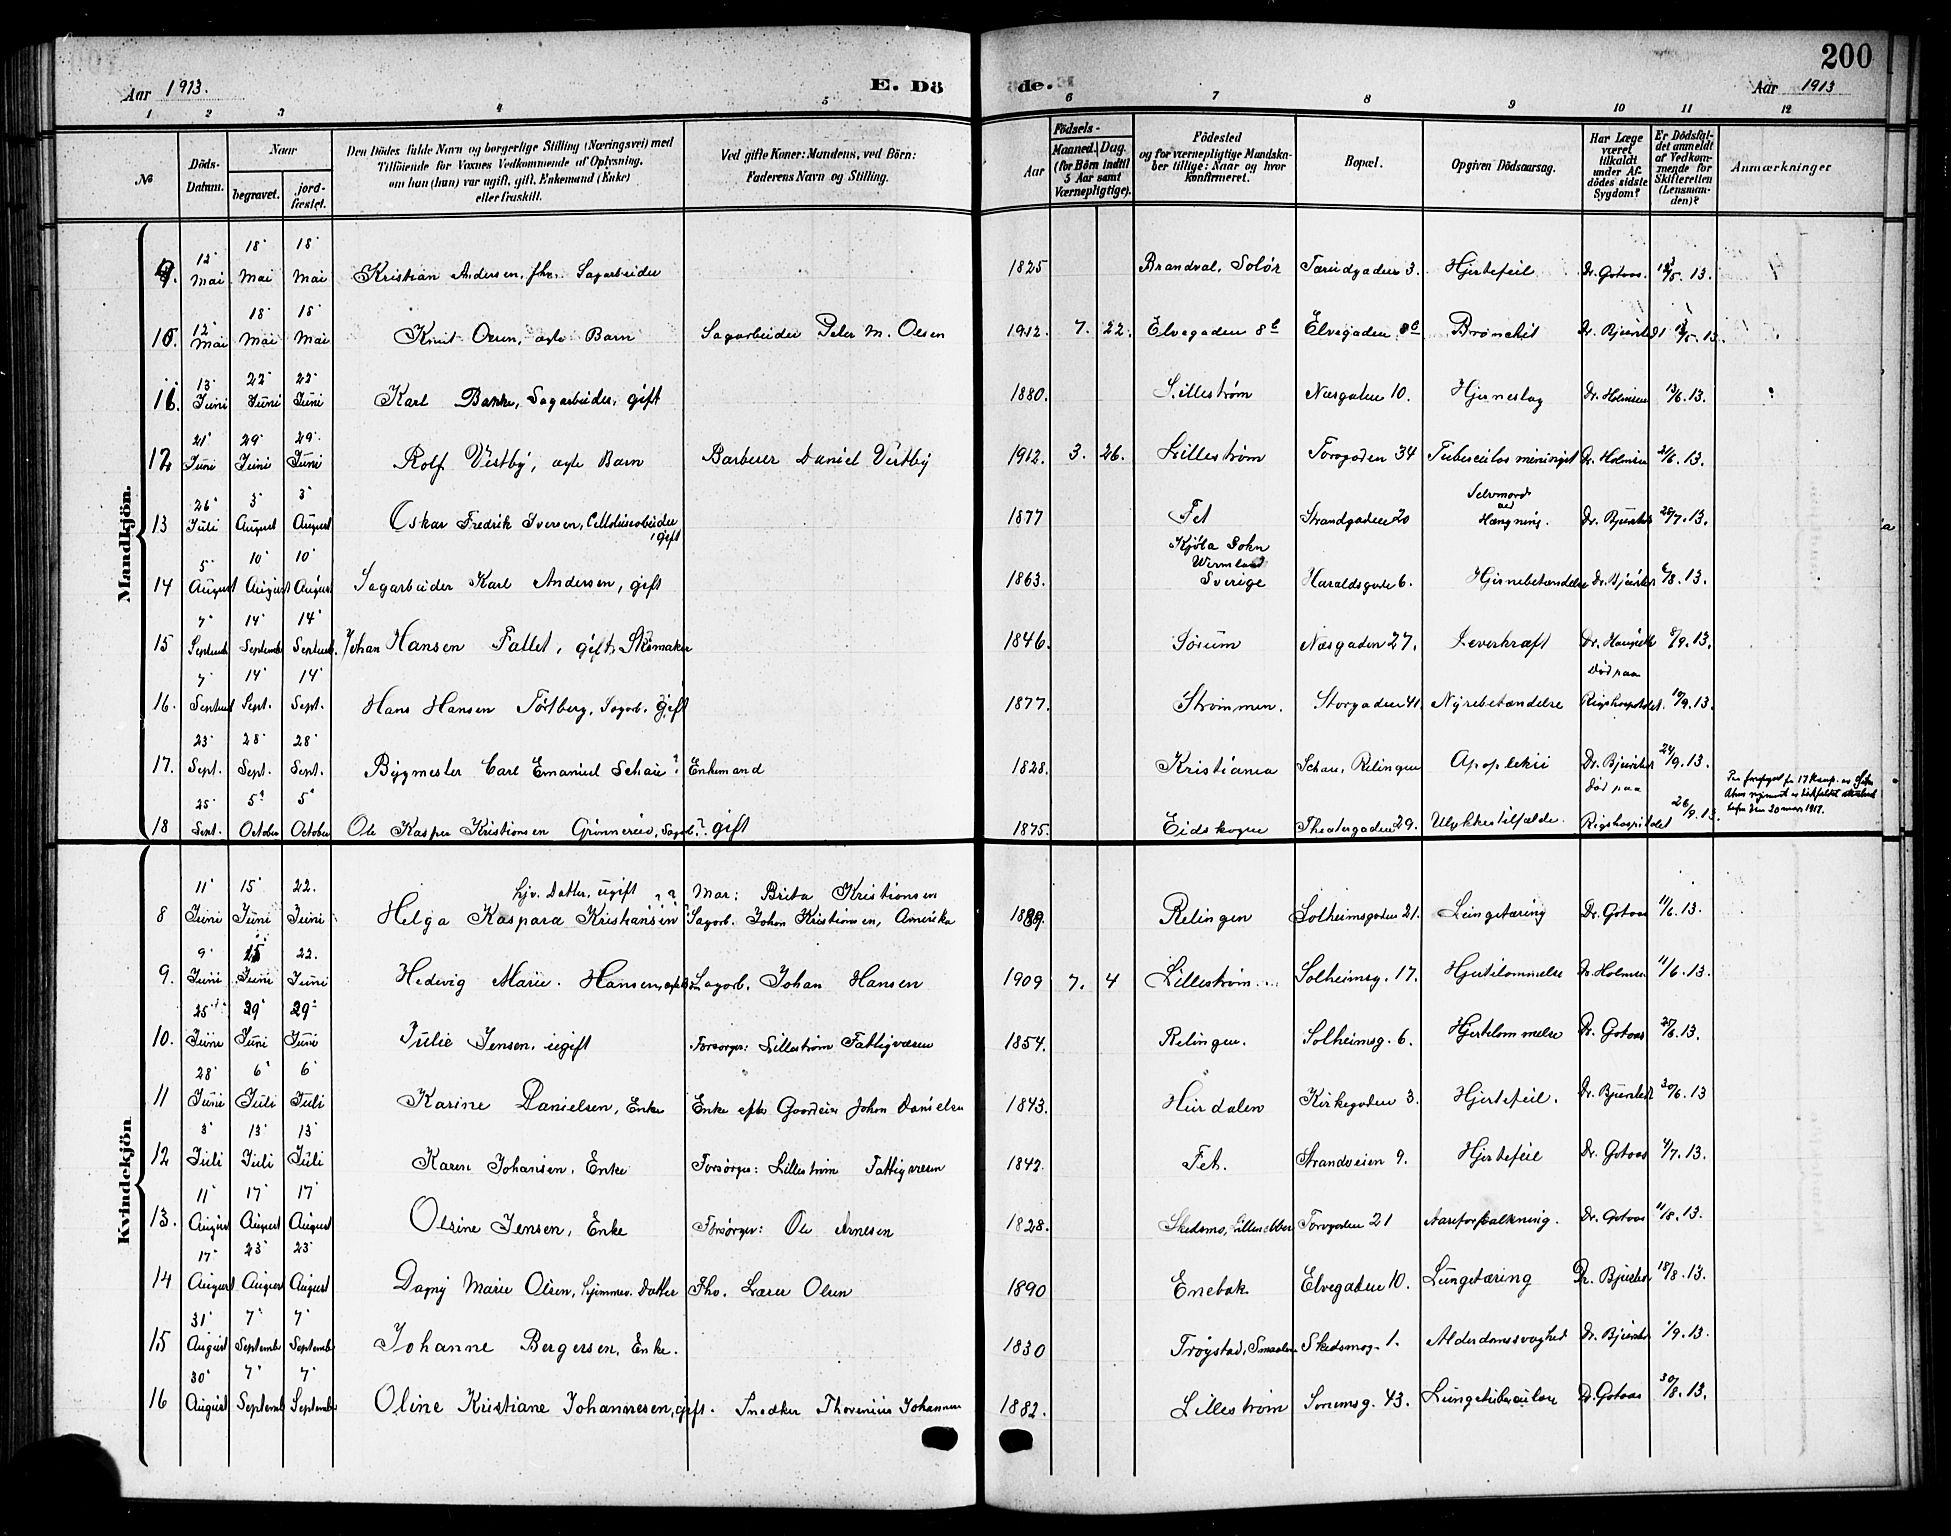 200
Aar 1913. E. Dö de. Aar 1913
1 2 3 4 5 6 7 8 9 10 11 12
№
Döds-Datum.
Naar
begravet.
jord-fæstet.
Den Dödes fulde Navn og borgerlige Stilling (Næringsvei) med
Tilföiende for Voxnes Vedkommende af Oplysning,
om han (hun) var ugift, gift, Enkemand (Enke)
eller fraskilt.
Ved gifte Koner: Mandens, ved Börn:
Faderens Navn og Stilling.
Aar
Födsels-
Maaned. Dag.
(for Börn indtil
5 Aar samt
Værnepligtige).
Födested
og for værnepligtige Mandska-
ber tillige: Naar og hvor
konfirmeret.
Bopæl.
Opgiven Dödsaarsag.
Har Læge
været
tilkaldt
under Af-
dödes sidste
Sygdom?
Er Dödsfal-
det anmeldt
af Vedkom-
mende for
Skifteretten
(Lensman-
den)?
Anmærkninger
Mandkjön.
9. 12 Mai 18 Mai 18 Mai Kristian Andersen, fhv. Sagarbeider 1825 Brandval, Solør 3. Hjertefeil Dr. Gotaas. 13/5. 13.
10. 12 Mai 18 Mai 18 Mai Knut Olsen, ægte Barn Sagarbeider Peter M. Olsen 1912. 7. 22. Elvegaden 8 b Elvegaden 8 b Bronchit Dr. Bjerstedt 13/5. 13.
11. 13 Juni 22 Juni 22 Juni Karl Bakke, Sagarbeider, gift 1880. Lillestrøm Næsgaten 10. Hjerneslag Dr. Holmsen 13/6. 13.
12 21 Juni 29 Juni 29 Juni Rolf Vestby, ægte Barn Barberer Daniel Vestby 1912. 3. 26. Lillestrøm Torvgaden 34 Tuberculøs meningit Dr. Holmsen 21/6. 13.
13 26 Juli 3 August 3 August Oskar Fredrik Iversen, Cellulosearbeider, gift 1877 Fet Strandgaden 20 Selvmord ved Hængning. Dr. Bjerstedt 28/7. 13.
14 5 August 10 August 10 August Sagarbeider Karl Andersen, gift 1863. Kjøla Sokn Wermland Sverige Haraldsgade 6. Hjernebetændelse Dr. Bjerstedt 6/8. 13.
15 7 Septemb 14 Septemb 14 Septemb. Johan Hansen Fallet, gift, Skomaker 1846. Sørum Næsgaden 27. Leverkræft Dr. 8/9. 13.
16. 7 Septemb 14 Sept. 14 Sept. Hans Hansen Tortberg, Sagarb. gift 1877. Strømmen. Storgaden 41. Nyrebetændelse Død paa Rigshospitalet. 10/9. 13.
17. 23 Sept. 28 Sept. 28 Sept. Bygmester Carl Emanuel Schau ?, Enkemand 1828. Kristiania Schau, Relingen Apoplekxi Dr. Bjerstedt 24/9. 13.
18 25 Sept. 5 October 5 October Ole Kasper Kristiansen Grønnereid, Sagarb. ?. gift 1875. Eidskogen Theatergaden 29. Ulykkestilfælde. død paa Rigshospitalet 26/9. 13.
Kvindekjön
8 11 Juni 15 Juni 22. Juni hjv. Datter, ugift Helga Kaspara Kristiansen Mor: Brita Kristiansen Sagarb. Johan Kristiansen, Amerika 1889. Relingen Solheimsgaden 21. Lungetæring Dr. Gotaas 11/6. 13.
9. 9 Juni 15 Juni 22. Juni Hedevig Marie Hansen, ægte Sagarb. Johan Hansen 1909 7. 4 Lillestrøm Solheimsg. 17. Hjertelammelse Dr. Holmsen 11/6. 13.
10. 25 Juni 29 Juni 29 Juni Julie Jensen, ugift Forsørger: Lillestrøm Fattigvæsen 1854. Relingen. Solheimsg. 6. Hjertelammelse Dr. Gotaas 25/6. 13.
11 28 Juni 6 Juli 6 Juli Karine Danielsen, Enke Enke efter Gaardeier Johan Danielsen 1843. Hurdalen Kirkegaden 3. Hjertefeil. Dr. Bjerstedt 30/6. 13
12 3 Juli 13 Juli 13 Juli Karen Johansen, Enke Forsørger: Lillestrøm Fattigvæsen 1842. Fet. Strandveien 9. Hjertefeil Dr. Gotaas 4/7. 13.
13. 11 August 17 August 17 August Olsine Jensen, Enke Forsørger: Ole Arnesen 1828. Skedsmo, Torvgaden 21 Aareforkalkning. Dr. Gotaas 11/8. 13.
14 17 August 23 August 23 August Dagny Marie Olsen, hjemmev. Datter Fhv. Lærer Olsen 1890 Enebak Elvegaden 10. Lungetæring Dr. Bjerstedt 18/8. 13.
15 31 August 7 Septemb 7 Septemb Johanne Bergersen, Enke. 1830 Trøgstad, Smaalen. Skedsmog. 1. Alderdomssvaghed Dr. Bjerstedt 1/9. 13.
16 30 August 7 Septemb 7 Septemb Oline Kristiane Johannesen, gift. Snedker Thorenius Johannesen 1882. Lillestrøm Sørumsg. 43. Lungetuberculose Dr. Gotaas 30/8. 13.